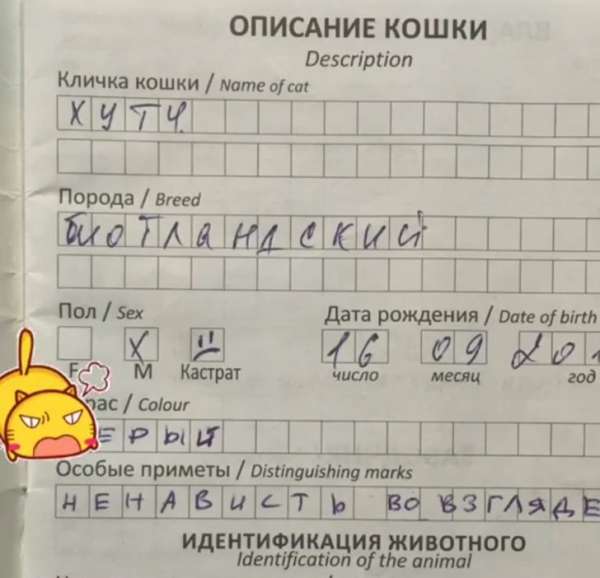 ОПИСАНИЕ КОШКИ
Description
Кличка кошки / Name of cat
ХУТЧ
Порода / Breed
биотландский
Пол / Sex Дата рождения / Date of birth
X 16 09 20
F M Кастрат число месяц год
рас / Colour
ЕРЫЙ
Особые приметы / Distinguishing marks
НЕНАВИСТЬ ВО ВЗГЛЯДЕ
ИДЕНТИФИКАЦИЯ ЖИВОТНОГО
Identification of the animal